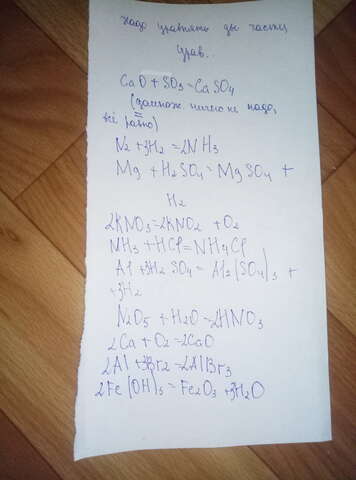 Надо уравнять две части
урав..
CaO + SO3 = CaSO4
(замнож. ничего не надо,
всё равно)
N2 + 3H2 = 2NH3
Mg + H2SO4 = MgSO4 +
H2
2KNO3 = 2KNO2 + O2
NH3 + HCl = NH4Cl
Al + 3H2SO4 = Al2(SO4)3 +
+3H2
N2O5 + H2O = 2HNO3
2Ca + O2 = 2CaO
2Al + 3Br2 = 2AlBr3
2Fe(OH)3 = Fe2O3 + 3H2O